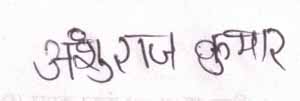 अंशुराज कुमार